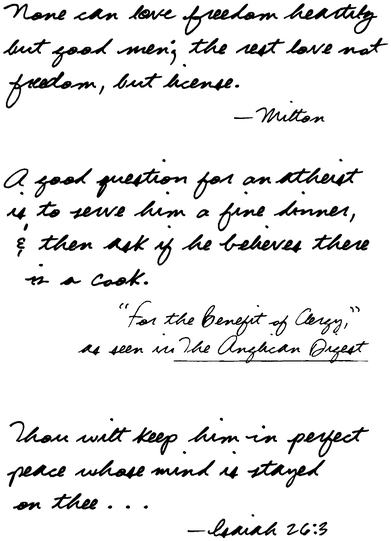 None can love freedom heartily
but good men; the rest love not
freedom, but license.
—Milton
A good question for an atheist
is to serve him a fine dinner,
& then ask if he believes there
is a cook.
"For the Benefit of Clergy,"
as seen in The Anglican Digest
Thou wilt keep him in perfect
peace whose mind is stayed
on thee . . .
—Isaiah 26:3